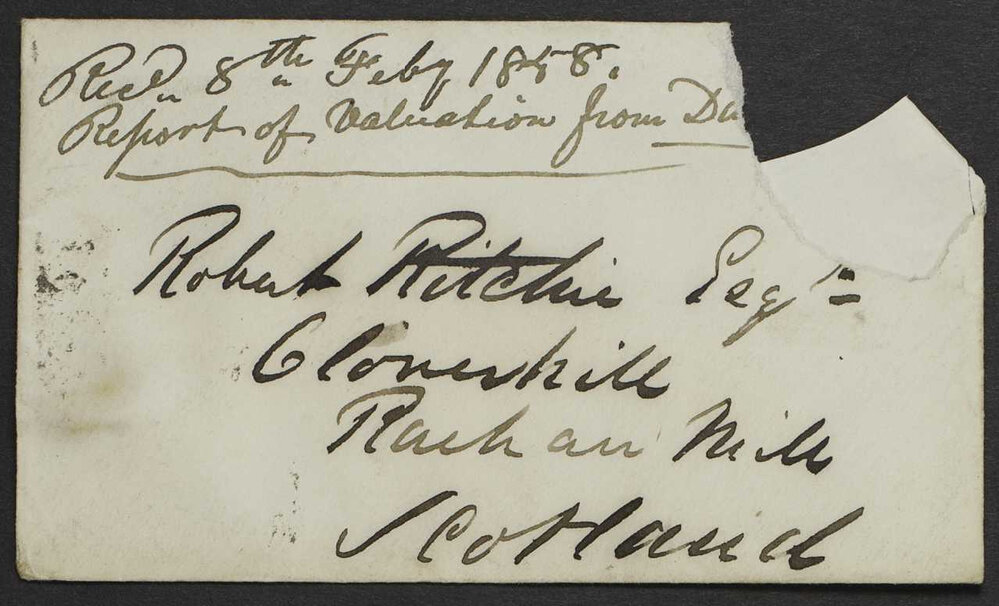 Recd. 8th Feby 1858.
Report of Valuation from Du
Robert Ritchie Esqr
Cloverhill
Rachan Mill
Scotland